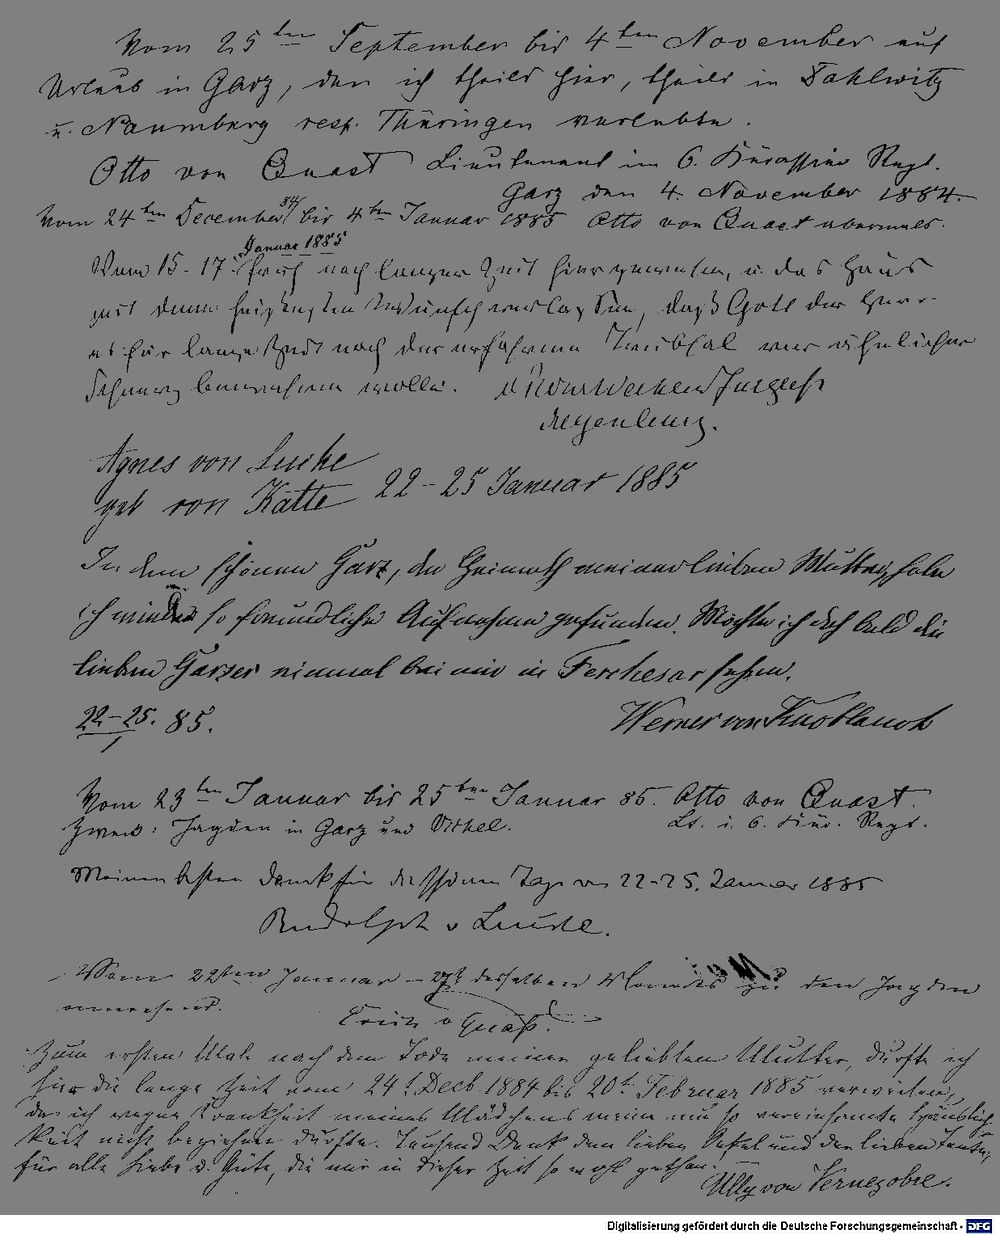 Vom 25ten September bis 4ten November auf
Urlaub in Garz, den ich theils hier, theils in Dahlwitz
u. Naumburg resp. Thüringen verlebte.
Otto von Quast Lieutenant im 6. Kürassier Regt.
Garz den 4. November 1884.
Vom 24ten December 84 bis 4ten Januar 1885 Otto von Quast abermals.
Januar 1885
Vom 15-17 frisch nach langer Zeit hier gewesen, u. das Haus
mit dem heißesten Wunsch verlassen, daß Gott der Herr
es für lange Zeit nach der erfahrenen Trübsal vor ähnlichem
Schmerz bewahren wolle.
Agnes von Lucke
geb von Katte 22-25 Januar 1885
In dem schönen Garz, der Heimath meiner lieben Mutter, habe
ich wieder so freundliche Aufnahme gefunden. Möchte ich doch bald die
lieben Garzer einmal bei mir in Ferchesar sehen.
22-25. 85.
1
Werner von Knoblauch
Vom 23ten Januar bis 25ten Januar 85. Otto von Quast.
Zweck: Jagden in Garz und Vichel. Lt. i. 6. Kür. Regt.
Meinen besten Dank für die schönen Tage von 22-25. Januar 1885
Rudolph v Lucke.
Vom 22ten Januar - 27t desselben Monats zu den Jagden
anwesend.
Erich v Quast.
Zum ersten Male nach dem Tode meiner geliebten Mutter, durfte ich
hier die lange Zeit vom 24t Decb. 1884 bis 20t Februar 1885 verweilen,
da ich wegen Krankheit meines Mädchens meine nun so vereinsamte Häuslich-
keit nicht beziehen durfte. Tausend Dank dem lieben Onkel und der lieben Tante,
für alle Liebe u. Güte, die mir in dieser Zeit so wohl gethan.
Ully von Vernezobre.
Digitalisierung gefördert durch die Deutsche Forschungsgemeinschaft - DFG